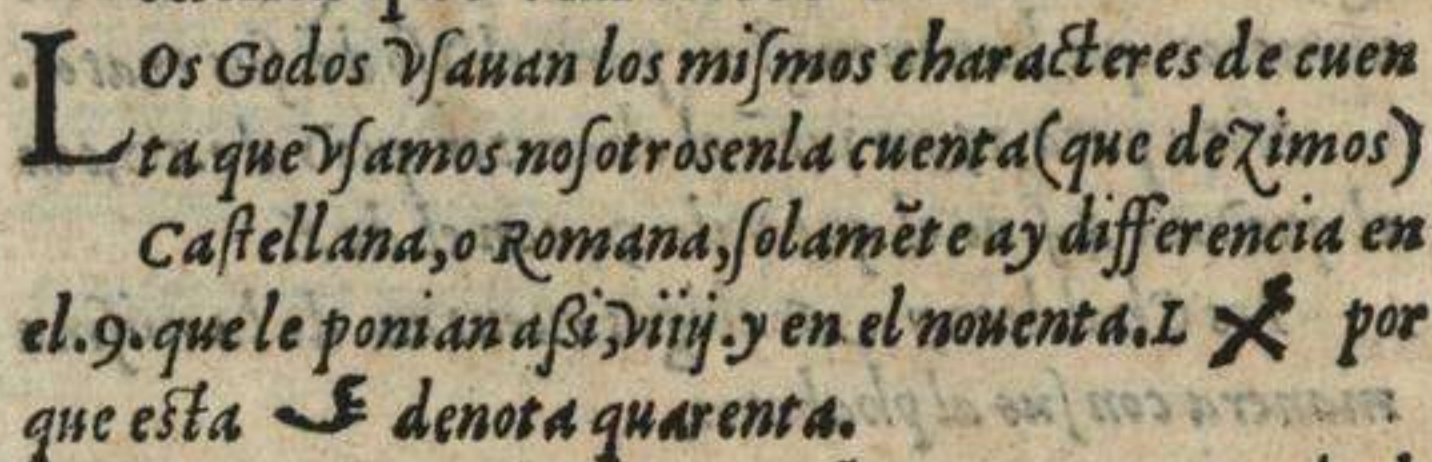 LOs Godos vſauan los miſmos characteres de cuen
ta que vſamos noſotrosenla cuenta (que dezimos)
Caſtellana, o Romana, ſolamẽte ay differencia en
el .9. que le ponian aßi, viiij. y en el nouenta. L X por
que eſta denota quarenta.